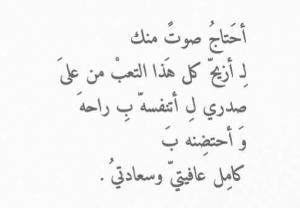 أحَتاجُ صوتً منك
لِـ أزيحّ كل هَذا التعبْ من علىَ
صدري لِ أتنفسهّ بِ راحهَ
وَ أحتضِنه بَ
كامِل عافيتيّ وسعادتيُ .